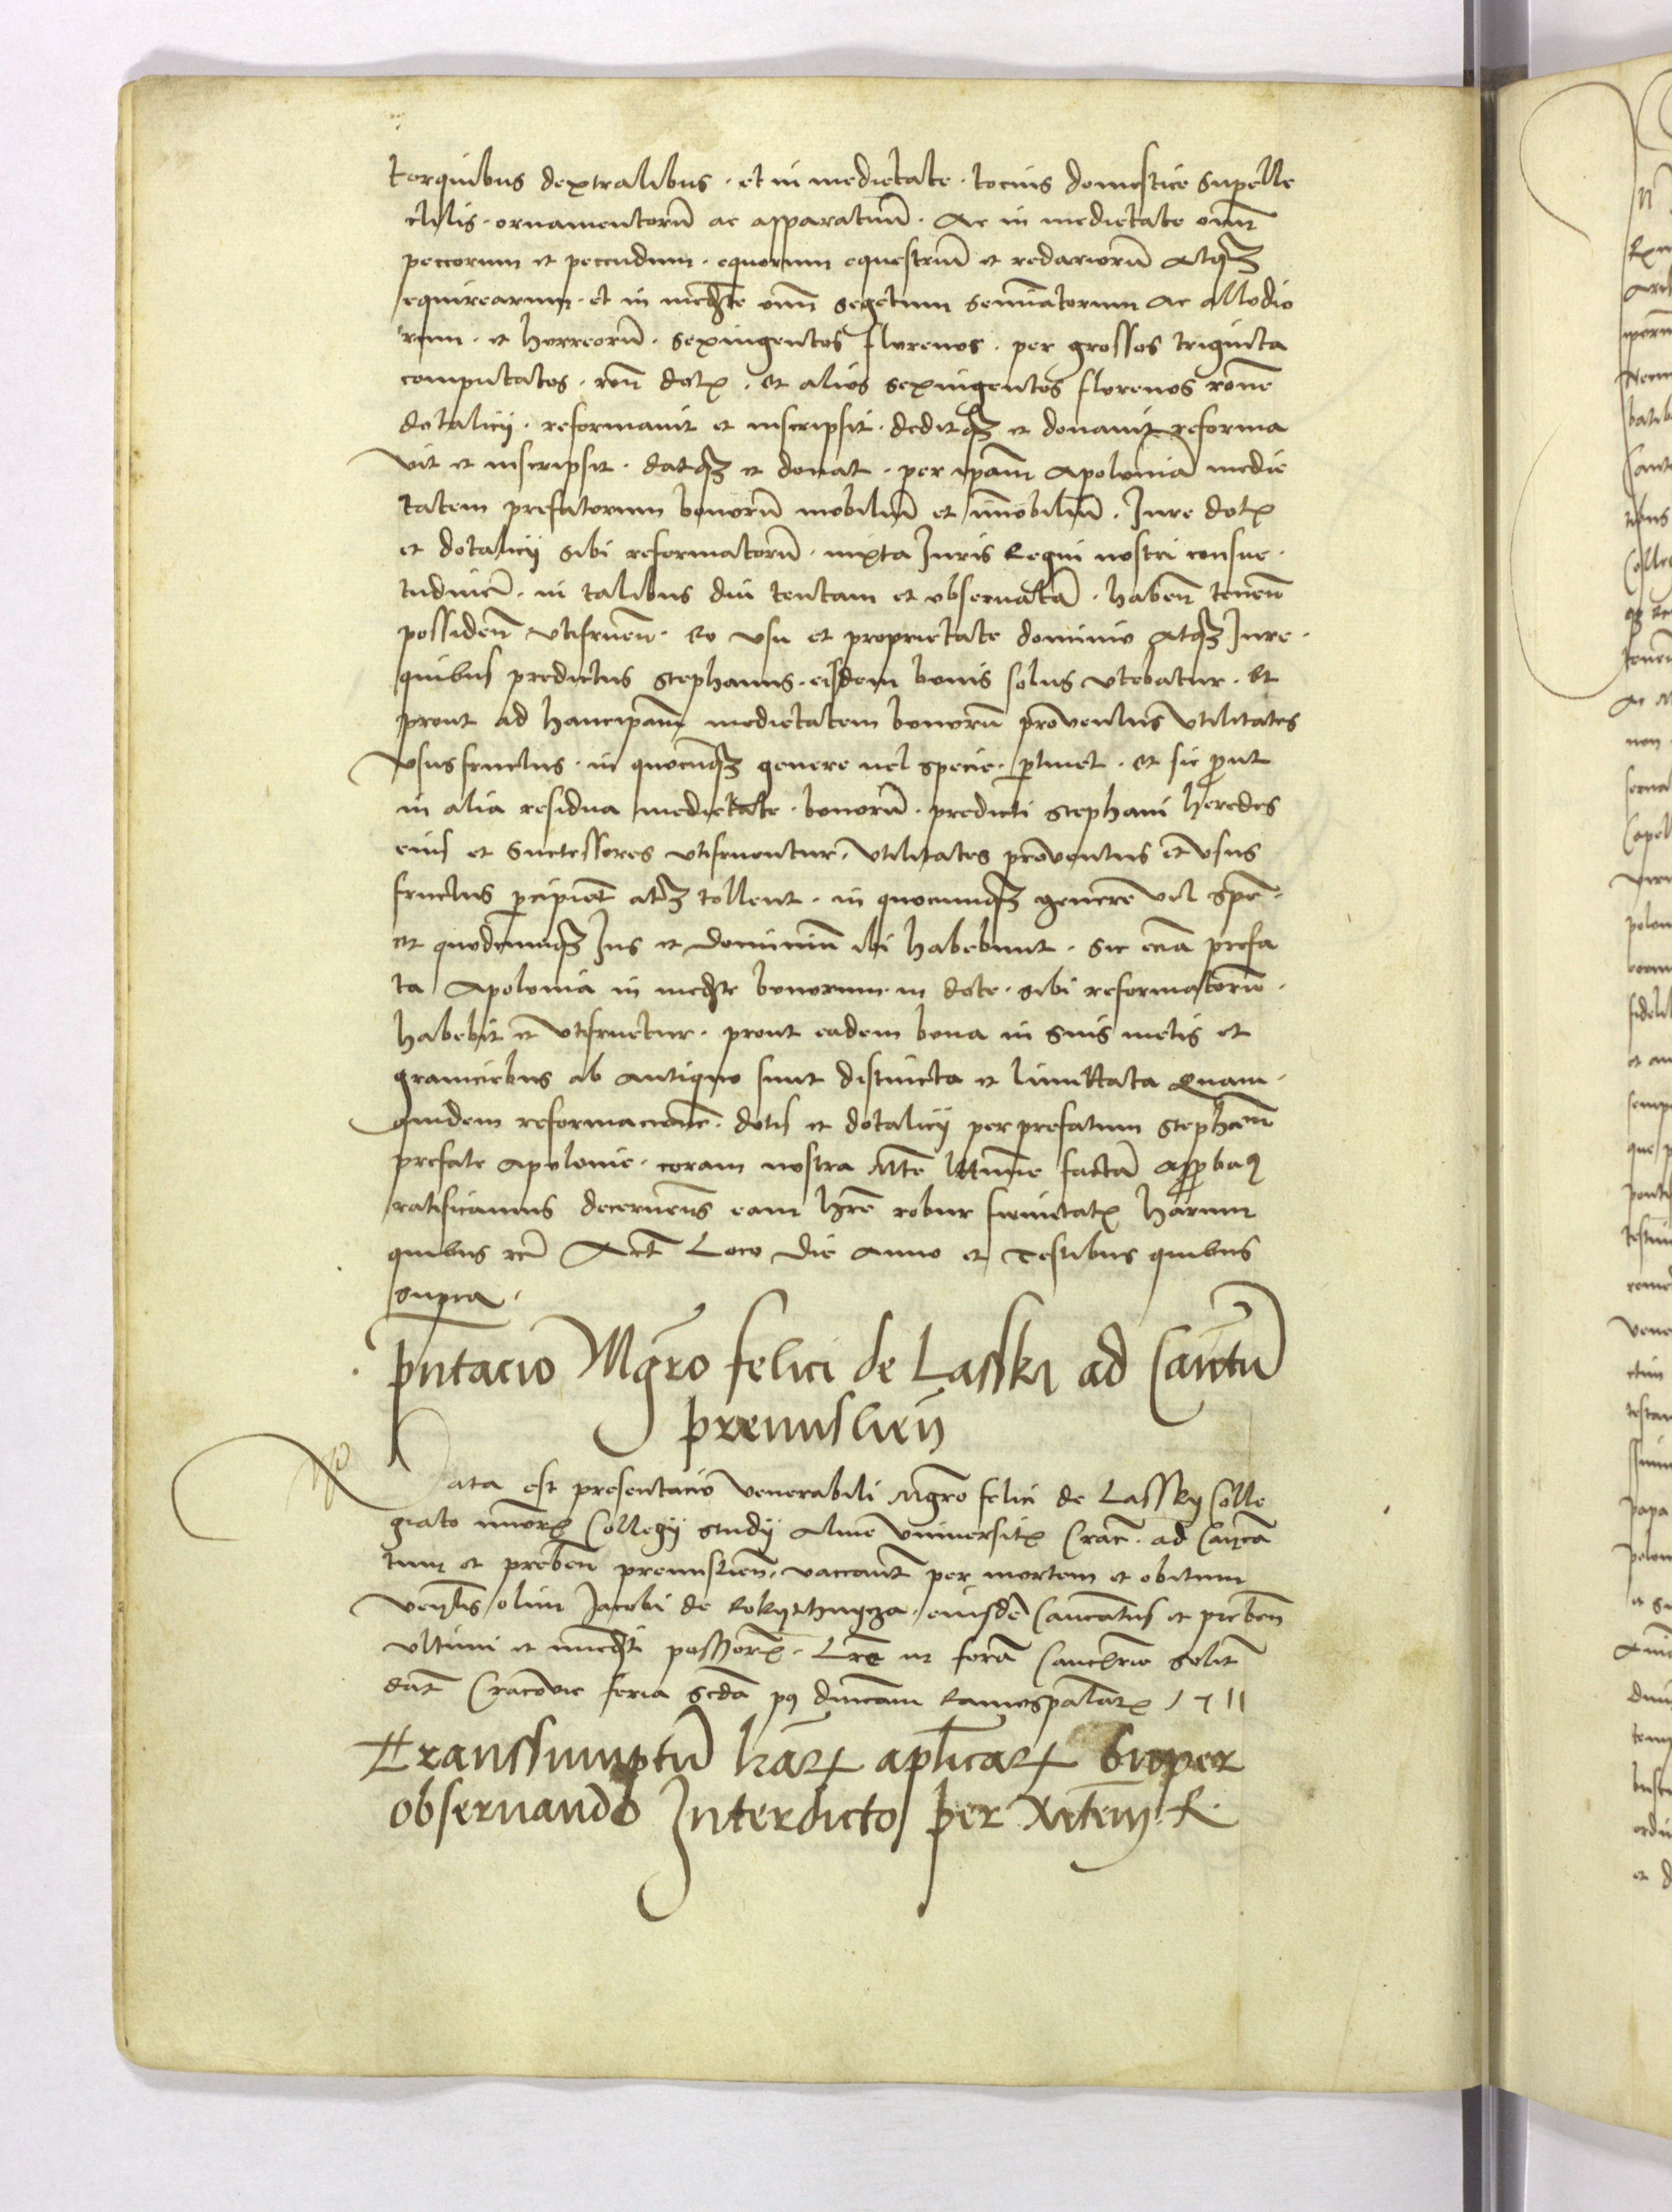 torquibus dextralibus · et in medietate · tocius domestice supelle
ctilis · ornamentorū ac apparatuū · Ac in medietate om̄
peccorum et peccudum · equorum equestriū et redariorū Atq̄ȝ
equirearum · et in med̄te om̄ segetum seminatorum ac allodio
rum · et horreorū · sexingentos florenos · per grossos triginta
computatos · rōn dotꝭ · et alios sexingentos florenos rōne
dotalicij · reformauit et inscripsit · deditqȝ et donauit reforma
vit et inscripsit · datqȝ et donat · per ip̄am Apoloniā medie
tatem prefatorum bonorū mobiliū et im̄obiliū · Jure dotꝭ
et dotalicij sibi reformatorū · iuxta Juris Regni nostri consue
tudinē · in talibus diu tentam et obseruatā · habeñ teneñ
possideñ vtifrueñ · eo vsu et proprietate dominio atqȝ Jure ·
quibus predictus Stephanus · eisdem bonis solus vtebatur · Et
prout ad hanc ip̄am medietatem bonorū prouentus vtilitates
vsusfructus · in quocunqȝ genere uel specie · ꝑtinet · et sic ꝓut
in alia residua medietate · bonorū · predicti Stephani heredes
eius et Successores vtifruentur · vtilitates prouentus et vsus
fructus ꝑcipiēt atqȝ tollent · in quocunqȝ genere vel spē ·
et quodcunqȝ Jus et dominiū ibi habebunt · sic eciā prefa
ta Apolonia in med̄te bonorum in dote · sibi reformatorū ·
habebit et vtifruetur · prout eadem bona in suis metis et
graniciebus ab antiquo sunt distincta et limittata Quam
quidem reformacionē · dotis et dotalicij per prefatum Stephanū
prefate Apolonie · coram nostra Mte̅ lttime factā approbaꝰ
ratificamus decernens̄ eam hr̄e robur firmitatꝭ harum
quibus rcē Act̄ Loco die Anno et Testibus quibus
supra ·
pn̄tacio Mgr̄o felici de Lasski ad Can̄tū
premislieñ
Data est presentacio venerabili Mgr̄o felici de Lassky Colle
giato minorꝭ Collegij studij alme vniuersitꝭ Crac̄ · ad Canca
tum et prebeñ premislieñ · vaccant̄ per mortem et obitum
ven̄lis olim Jacobi de · eiusdē Canc̄atus et prebeñ
vltimi et im̄ed̄ti possorꝭ · Lr̄e in forā Canc̄rie solit̄
dat̄ Cracouie feria sc̄da pꝰ dn̄icam Ramispalmarꝭ 1511
Transsumptū lr̄arꝝ apl̄icarꝝ super
obseruando Interdicto per R